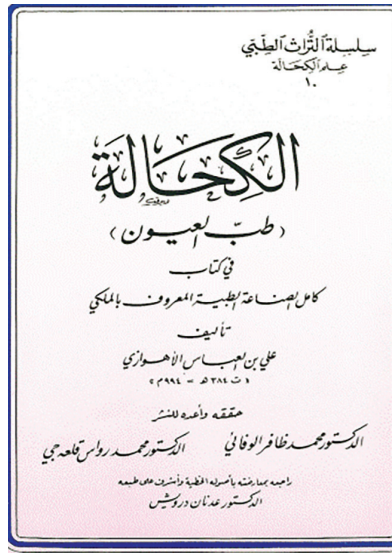 سلسلة التراث الطبي
علم الكحالة
١٠
الكحالة
(طبّ العيون)
في كتاب
كامل الصناعة الطبية المعروف بالملكي
تأليف
علي بن العباس الأهوازي
(ت ٣٨٤ هـ - ٩٩٤ م)
حققه وأعده للنشر
الدكتور محمد ظافر الوفائي الدكتور محمد رواس قلعه جي
راجعه بمعارضته بأصوله الخطية وأشرف على طبعه
الدكتور عدنان درويش